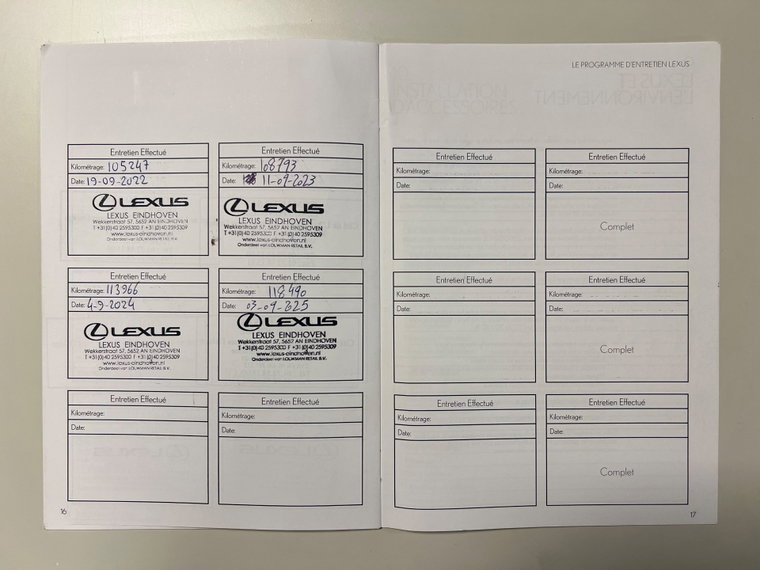 Entretien Effectué
Kilométrage: 105247
Date: 19-09-2022
LEXUS
LEXUS EINDHOVEN
Wekkerstraat 57, 5652 AN EINDHOVEN
T +31(0)40 2595300 F +31(0)40 2595309
www.lexus-eindhoven.nl
Onderdeel van LOUWMAN RETAIL B.V.
Entretien Effectué
Kilométrage: 108793
Date: 11-09-2023
LEXUS
LEXUS EINDHOVEN
Wekkerstraat 57, 5652 AN EINDHOVEN
T +31(0)40 2595300 F +31(0)40 2595309
www.lexus-eindhoven.nl
Onderdeel van LOUWMAN RETAIL B.V.
Entretien Effectué
Kilométrage: 113966
Date: 4-9-2024
LEXUS
LEXUS EINDHOVEN
Wekkerstraat 57, 5652 AN EINDHOVEN
T +31(0)40 2595300 F +31(0)40 2595309
www.lexus-eindhoven.nl
Onderdeel van LOUWMAN RETAIL B.V.
Entretien Effectué
Kilométrage: 118490
Date: 03-09-2025
LEXUS
LEXUS EINDHOVEN
Wekkerstraat 57, 5652 AN EINDHOVEN
T +31(0)40 2595300 F +31(0)40 2595309
www.lexus-eindhoven.nl
Onderdeel van LOUWMAN RETAIL B.V.
Entretien Effectué
Kilométrage:
Date:
Entretien Effectué
Kilométrage:
Date:
16
LE PROGRAMME D'ENTRETIEN LEXUS
Entretien Effectué
Kilométrage:
Date:
Entretien Effectué
Kilométrage:
Date:
Complet
Entretien Effectué
Kilométrage:
Date:
Entretien Effectué
Kilométrage:
Date:
Complet
Entretien Effectué
Kilométrage:
Date:
Entretien Effectué
Kilométrage:
Date:
Complet
17